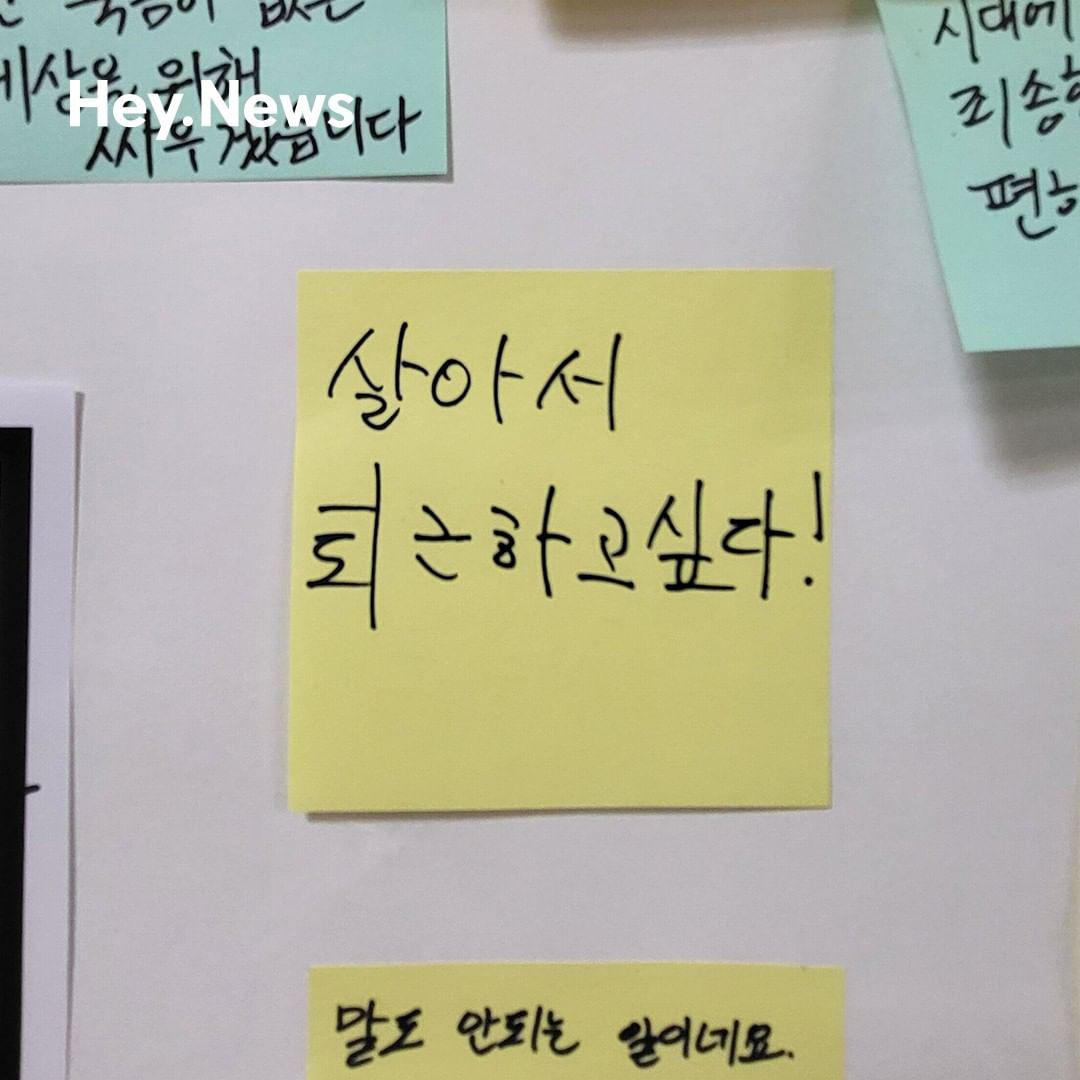 죽음이 없는
세상을 위해
싸우겠습니다
Hey.News
시대에
편
살아서
퇴근하고싶다!
말도 안되는 일이네요.